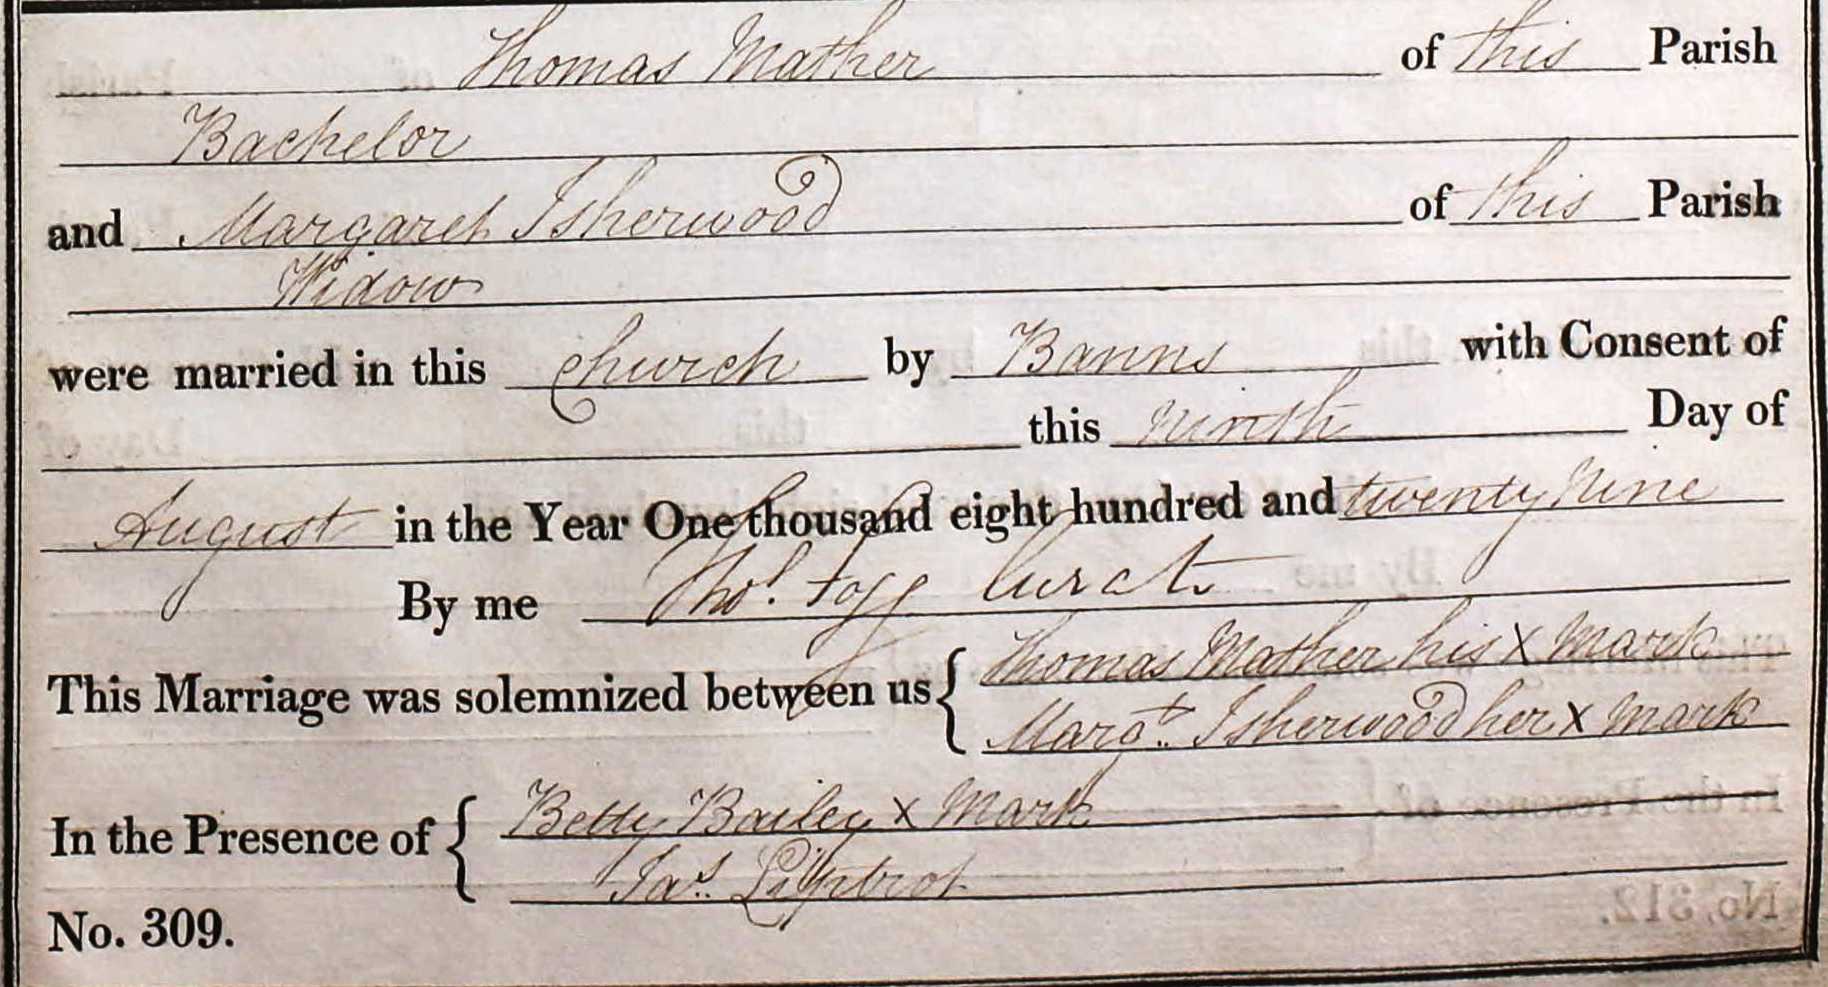 Thomas Mather of this Parish
Bachelor
and Margaret Isherwood of this Parish
Widow
were married in this Church by Banns with Consent of
this ninth Day of
August in the Year One thousand eight hundred and twenty nine
By me Thos. Fogg Curate
This Marriage was solemnized between us { Thomas Mather his X Mark
Margt. Isherwood her X Mark
In the Presence of { Betty Bailey X Mark
Jas. Liptrot
No. 309.